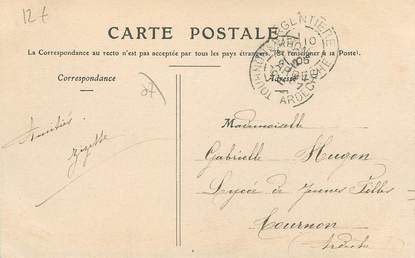 12€
CARTE POSTALE
La Correspondance au recto n'est pas acceptée par tous les pays étrangers. (Se renseigner à la Poste).
Correspondance
Adresse
07
ARDECHE
Amitiés
Mademoiselle
Gabrielle Hugon
Lycée de Jeunes Filles
Tournon
Ardèche